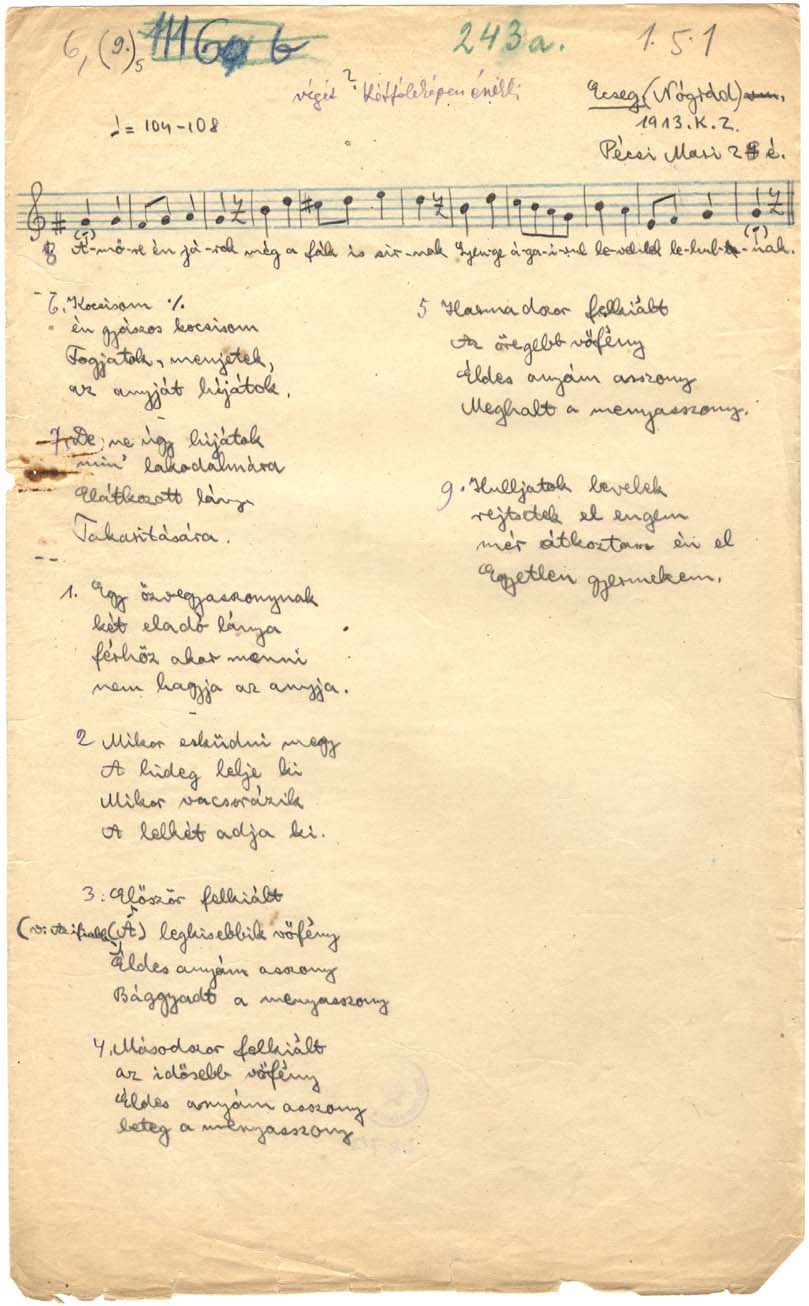 6, (9.)5 1116a b 243a. 1.5.1
végét ? kétféleképen énekli
Ecseg, (Nógrád) vm.
♩ = 104-108
1913. K. Z.
Pécsi Mari 28 é.
8 A-mő-re én já-rok még a fák is sir-nak Gyen-ge á-ga-i-rul le-ve-lek le-hul-nak.
6. Kocsisom %
én gyászos kocsisom
Fogjatok, menjetek,
az anyját hijátok.
7. De ne úgy hijátok
min' lakodalmára
Elátkozott lánya
Takaritására.
1. Egy özvegyasszonynak
két eladó lánya
férhöz akar menni
nem hagyja az anyja.
2 Mikor esküdni megy
A hideg lelje ki
Mikor vacsorázik
A lelkét adja ki.
3. Először felkiált
(v: Az ifjabb (A) legkisebbik vőfény
Éldes anyám asszony
Bággyadt a menyasszony
4, Másodszor felkiált
az idősebb vőfény
Éldes anyám asszony
beteg a menyasszony
5 Harmadszor felkiált
Az öregebb vőfény
Éldes anyám asszony
Meghalt a menyasszony.
9. Hulljatok levelek
rejtsetek el engem
mér átkoztam én el
Egyetlen gyermekem.